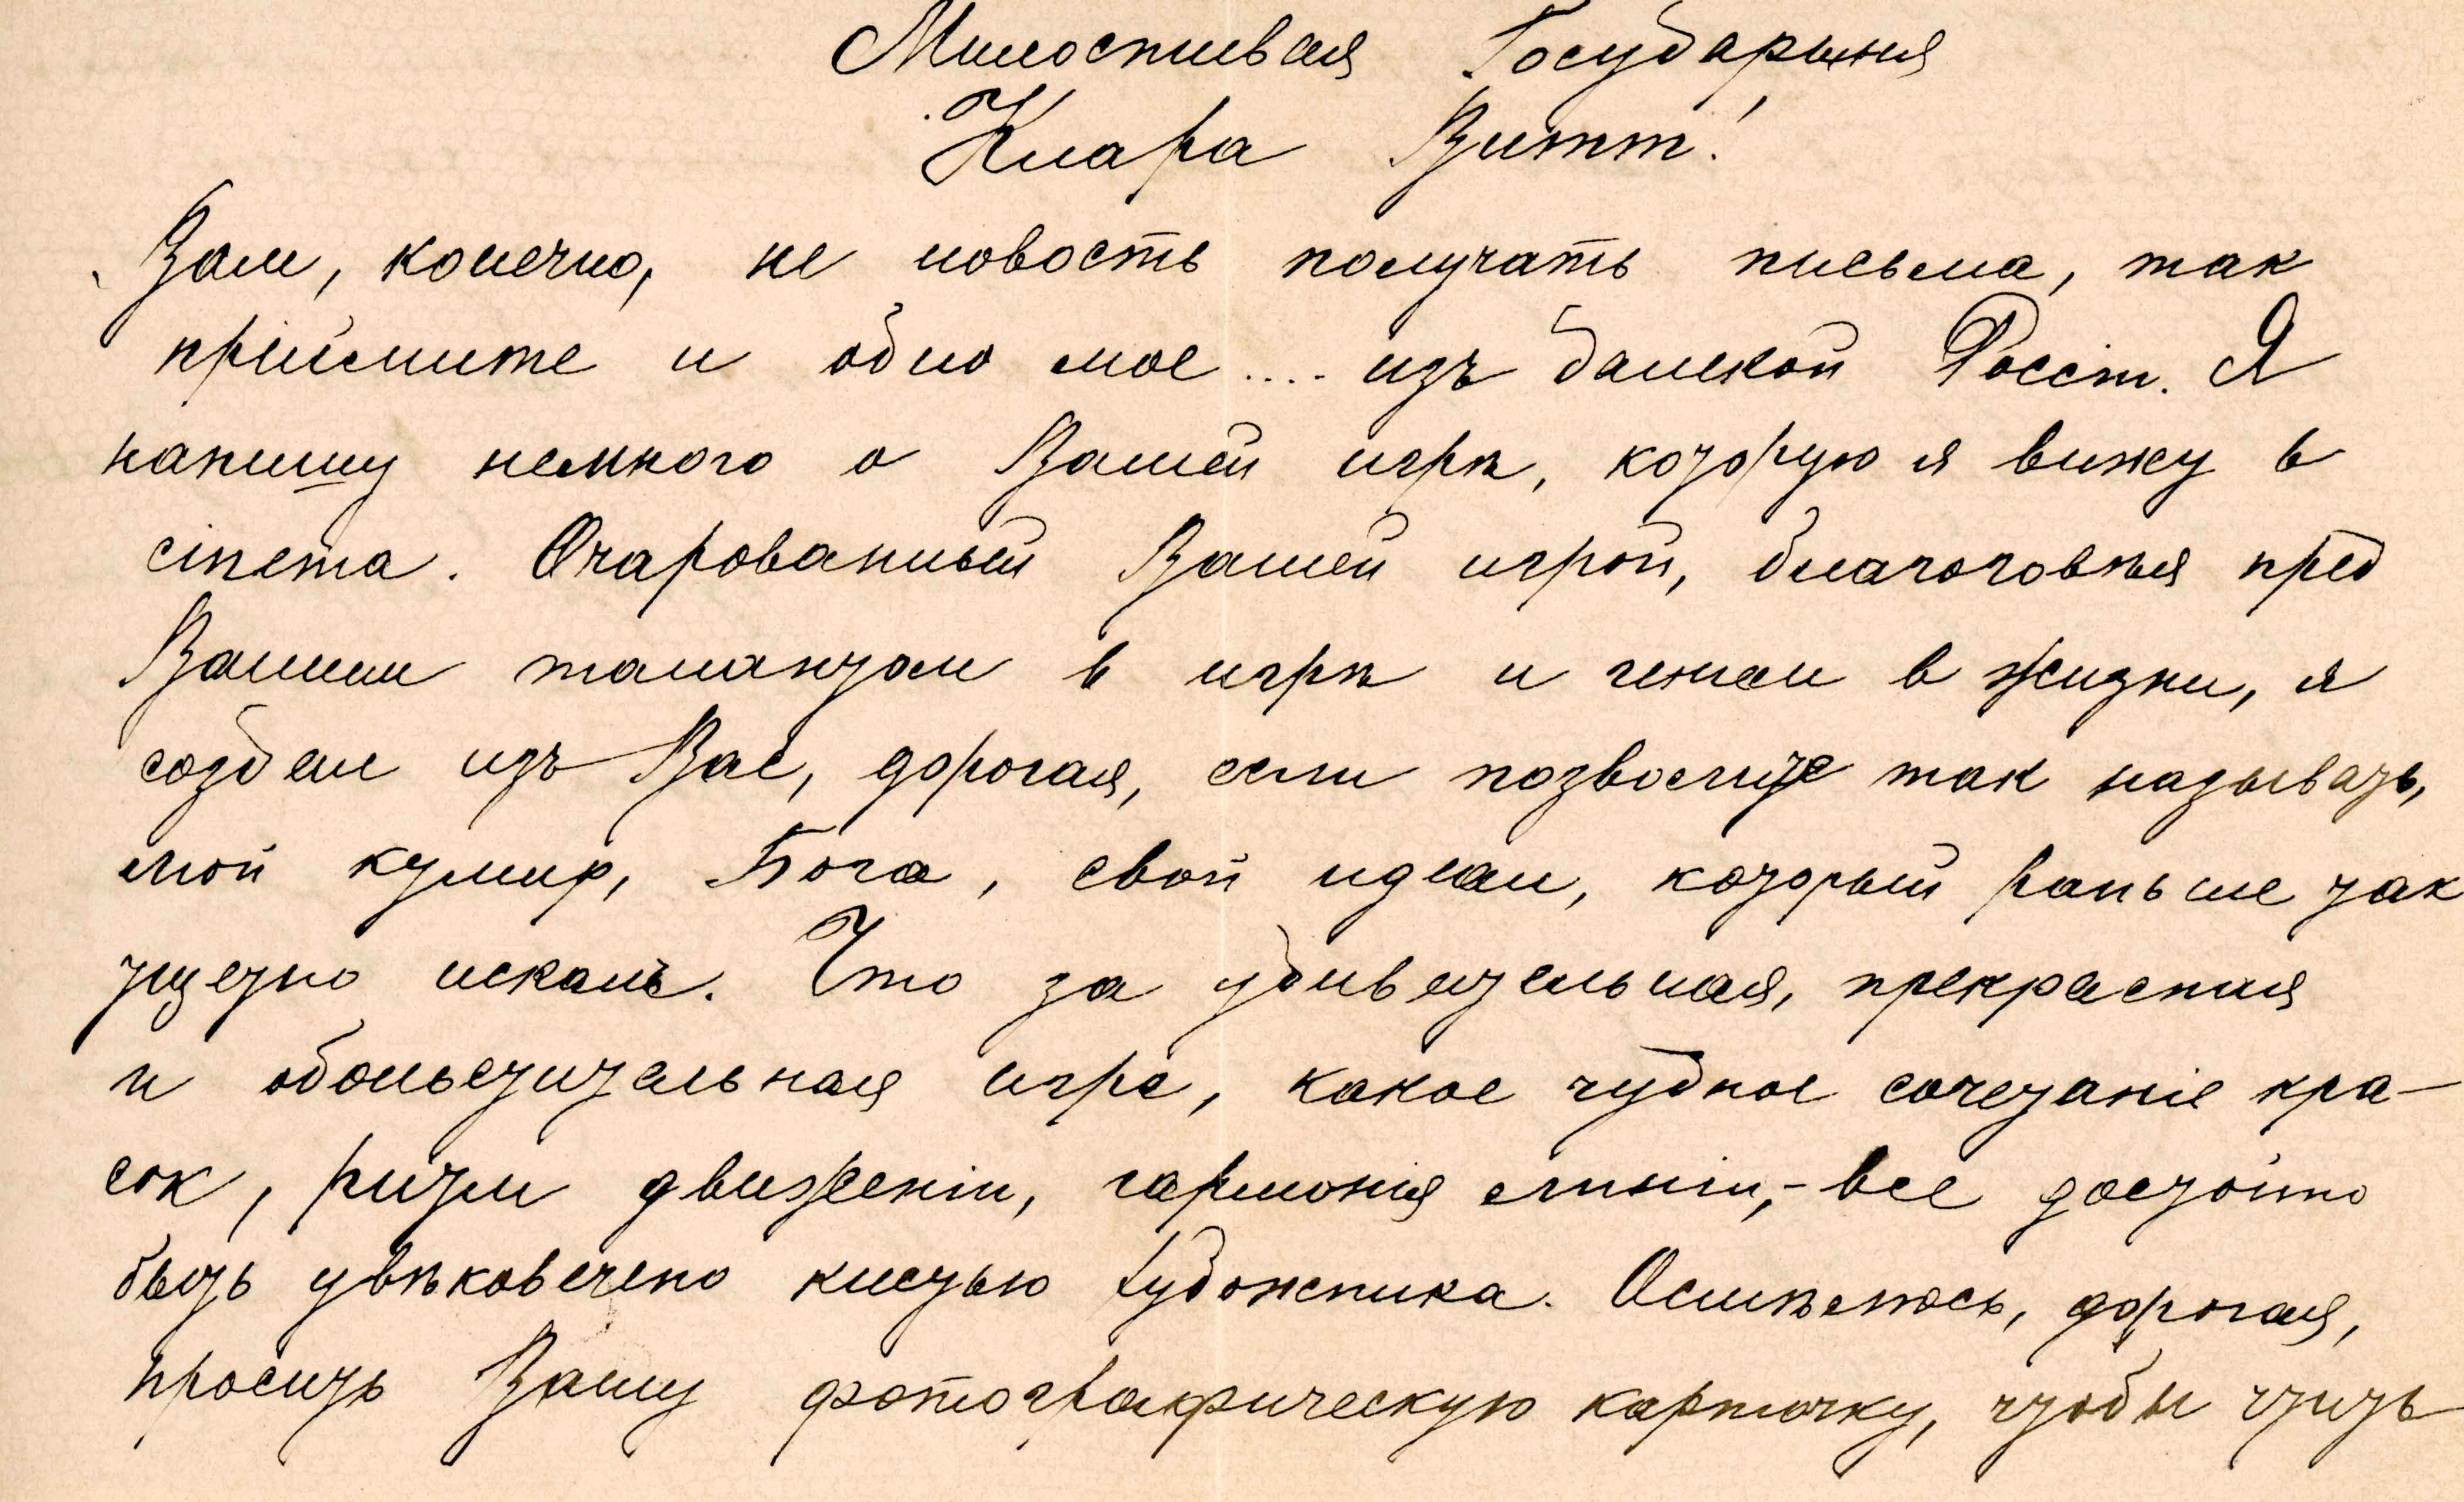 Милостивая Государыня
Клара Витт!
Вам, конечно, не новость получать письма, так
прiймите и одно мое .... изъ далекой Россiи. Я
напишу немного о Вашей игрѣ, которую я вижу в
cinema. Очарованный Вашей игрой, благоговѣя пред
Вашим талантом в игрѣ и генiем в жизни, я
создал изъ Вас, дорогая, если позволите так называть,
мой кумир, Бога, свой идеал, который раньше так
тщетно искалъ. Что за удивительная, прекрасная
и обольстительная игра, какое чудное сочетанiе кра-
сок, ритм движенiи, гармонiя линiи,- все достойно
быть увѣковечено кистью художника. Осмѣлюсь, дорогая,
просить Вашу фотографическую карточку, чтобы чтить